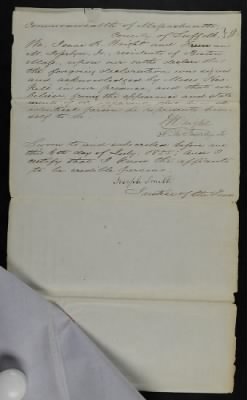 Commonwealth of Massachusetts
County of Suffolk
We, Isaac R. Wright and
residents of Boston
Mass, upon our oaths declare that
the foregoing declaration was signed
and acknowledged by Moses
in our presence, and that we
believe from the appearance and state
person he represents him
self to be
Wright
Sworn to and subscribed before me
this 6th day of July, 1855; and I
certify that I know the affiants
to be credible persons.
Joseph Smith
Justice of the Peace